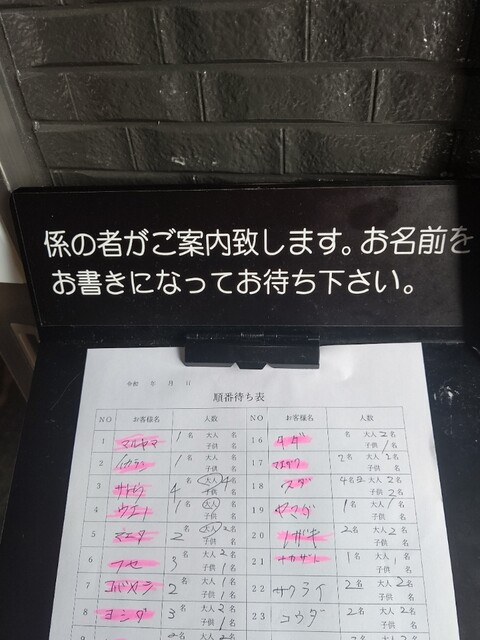 係の者がご案内致します。お名前を
お書きになってお待ち下さい。
令和 年 月 日
順番待ち表
NO お客様名 人数 NO お客様名 人数
1 マルヤマ 1名 大人 名 子供 名 16 タダ 名 大人2名 子供 名
2 1名 大人 名 子供 名 17 マエカワ 2名 大人 名 子供 名
3 サトウ 4 大人4名 子供 名 18 スダ 4名 大人2名 子供2名
4 ウエノ 1名 大人 名 子供 名 19 1名 大人 名 子供 名
5 マエダ 2名 大人2名 子供 名 20 ノザキ 2名 大人2名 子供 名
6 フセ 3名 大人2名 子供1名 21 ナカザト 1名 大人1名 子供 名
7 コバヤシ 2 大人1名 子供1名 22 サクライ 2名 大人2名 子供 名
8 ヨシダ 3名 大人2名 子供1名 23 コウダ 2名 大人2名 子供 名